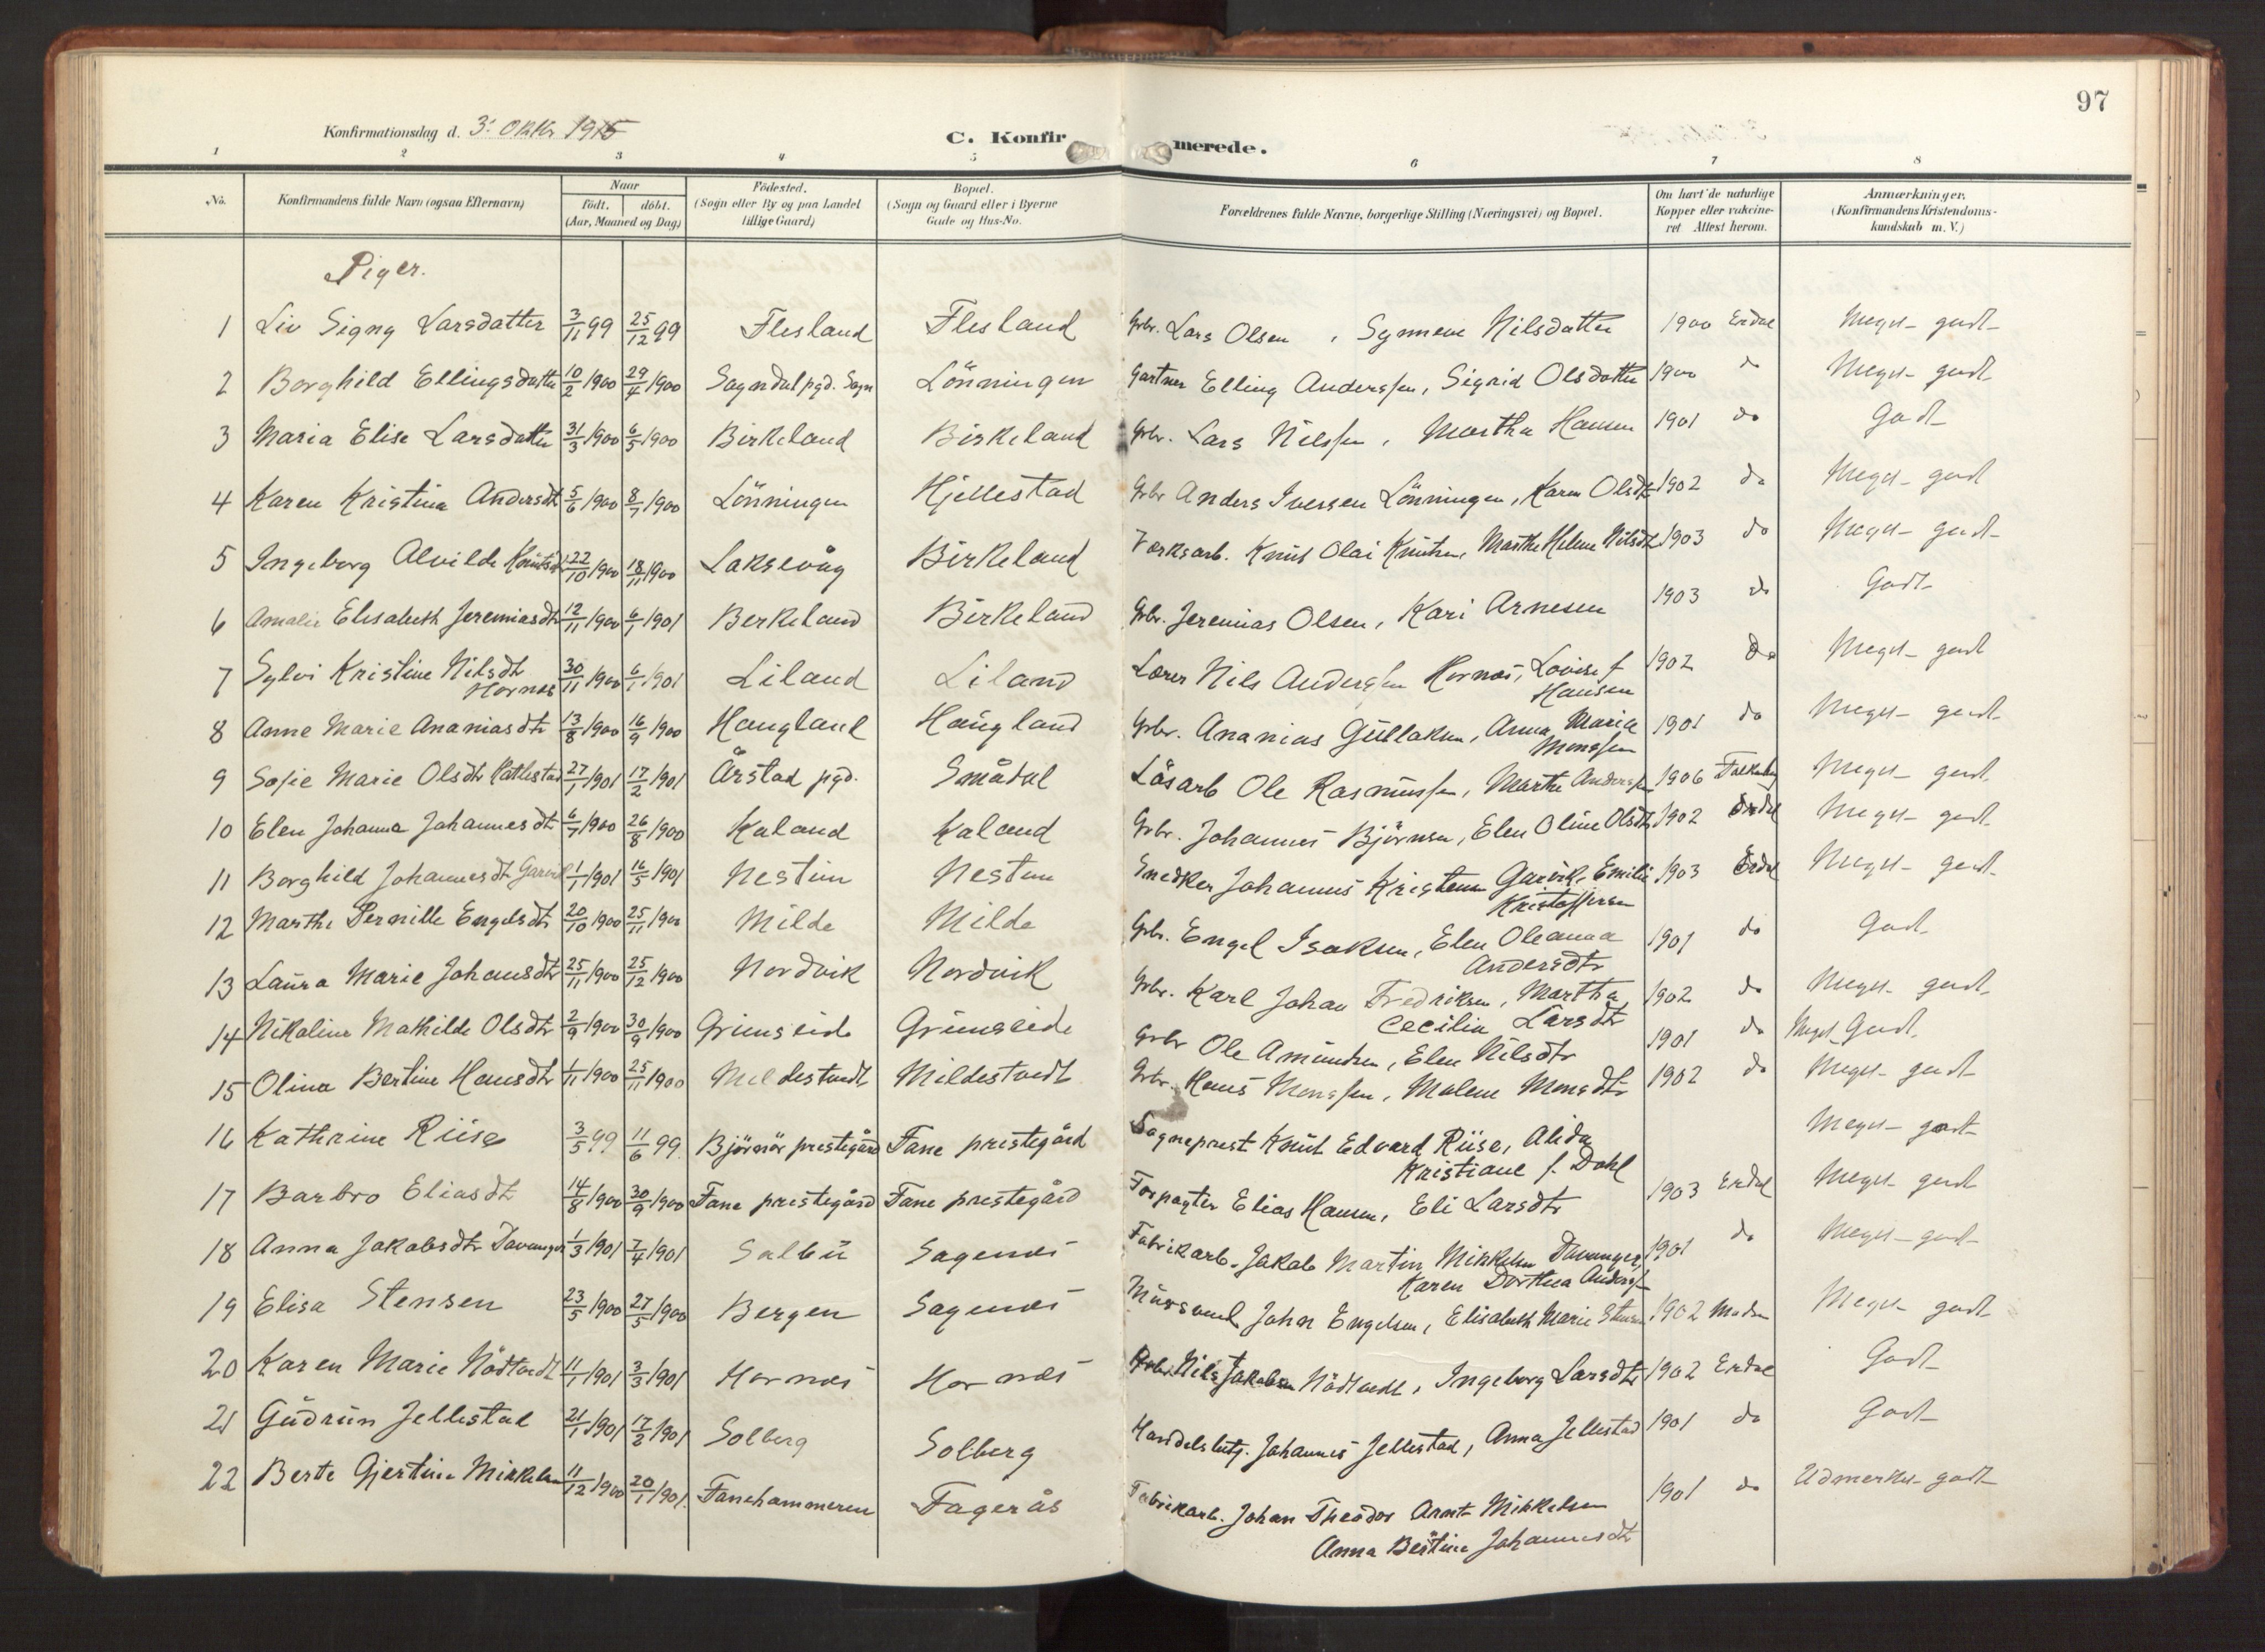 97
Konfirmationsdag d. 3. Oktbr 1915
C. Konfirmerede.
1 2 3 4 5 6 7 8
No. Konfirmandens fulde Navn (ogsaa Efternavn) Naar födt. döbt. (Aar, Maaned og Dag) Födested. (Sogn eller By og paa Landet tillige Gaard) Bopæl. (Sogn og Gaard eller i Byerne Gade og Hus-No. Forældrenes fulde Navne, borgerlige Stilling (Næringsvei) og Bopæl. Om havt de naturlige Kopper eller vakcineret Attest herom. Anmærkninger, (Konfirmandens Kristendomskundskab m. V.)
Piger.
1 Liv Signy Larsdatter 3/11 99 25/12 99 Flesland Flesland Gbr. Lars Olsen, Synneve Nilsdatter 1900 Erdal Meget godt
2 Borghild Ellingsdatter 10/2 1900 29/4 1900 Sogndal pgd. Sogn Lönningen Gartner Elling Anderssen, Sigrid Olsdatter 1900 do Meget godt
3 Maria Elise Larsdatter 31/3 1900 6/5 1900 Birkeland Birkeland Gbr. Lars Nilssen, Martha Hansen 1901 do Godt
4 Karen Kristina Andersdt 5/6 1900 8/7 1900 Lönningen Hjellestad Gbr Anders Iversen Lönningen, Karen Olsdt 1902 do Meget godt
5 Ingeborg Alvilde Knutsdt 22/10 1900 18/11 1900 Laksevåg Birkeland Værksarb. Knut Olai Knutsen, Marthe Helene Nilsdt 1903 do Meget godt
6 Amalie Elisabeth Jeremiasdt 12/11 1900 6/1 1901 Berkeland Birkeland Gbr. Jeremias Olsen, Kari Arnesen 1903 do Godt
7 Sylvi Kristine Nilsdt Hornæs 30/11 1900 6/1 1901 Liland Liland Lærer Nils Anderssen Hornæs, Lovise f Hansen 1902 do Meget godt
8 Anne Marie Ananiasdtr 13/8 1900 16/9 1900 Haugland Haugland Gbr. Ananias Gullaksen, Anna Maria Monssen 1901 do Meget godt
9 Sofie Marie Olsdtr Hatlestad 27/1 1901 17/2 1901 Årstad pgd. Smådal Lösarb Ole Rasmussen, Marthe Anderssen 1906 Meget godt
10 Elen Johanna Johannesdt 6/7 1900 26/8 1900 Kaland Kaland Gbr. Johannes Björnsen, Elen Oline Olsdt 1902 Erdal Meget godt
11 Borghild Johannesdt Garvik 1/1 1901 16/5 1901 Nestun Nestun Snedker Johannes Kristensen Garvik, Emilie Kristoffersen 1903 Erdal Meget godt
12 Marthe Pernille Engelsdtr 20/10 1900 25/11 1900 Milde Milde Gbr. Engel Isaksen, Elen Oleanna Andersdtr 1901 do Godt
13 Laura Marie Johansdtr 25/11 1900 25/12 1900 Nordvik Nordvik Gbr. Karl Johan Fredriksen, Martha Cecilie Larsdtr 1902 do Meget godt
14 Nikoline Mathilde Olsdtr 2/9 1900 30/9 1900 Grimseide Grimseide Gbr Ole Amundsen, Elen Nilsdtr 1901 do Meget Godt
15 Olina Bertine Hansdtr 1/11 1900 25/11 1900 Mildestvedt Mildestvedt Gbr. Hans Monssen, Malene Monsdtr 1902 do Meget godt
16 Kathrine Riise 3/5 99 11/6 99 Björnör prestegård Fane prestegård Sogneprest Knut Edvard Riise, Alida Kristiane f. Dahl Meget godt
17 Barbro Eliasdt 14/8 1900 30/9 1900 Fane prestegård Fane prestegård Forpagter Elias Hansen, Eli Larsdtr 1903 Erdal Meget godt
18 Anna Jakobsdtr Davanger 1/3 1901 7/4 1901 Salbu Sagenæs Fabrikarb. Jakob Martin Mikkelsen Davanger, Karen Dorthea Anderss 1901 do Meget godt
19 Elisa Stensen 23/5 1900 27/5 1900 Bergen Sagenæs Mursvend John Engelsen, Elisabeth Marie Stensen 1902 Madsen Meget godt
20 Karen Marie Nödtvedt 11/1 1901 3/3 1901 Hornæs Hornæs Gbr. Nils Jakobsen Nödtvedt, Ingeborg Larsdtr 1902 Erdal Godt
21 Gudrun Jellestad 21/1 1901 17/2 1901 Solberg Solberg Handelsbetj. Johannes Jellestad, Anna Jellestad 1901 do Godt
22 Berte Gjertine Mikkelsen 11/12 1900 20/1 1901 Fanehammeren Fagerås Fabrikarb. Johan Theodor Arnt Mikkelsen Anna Bertine Johannesdtr 1901 do Udmerket godt